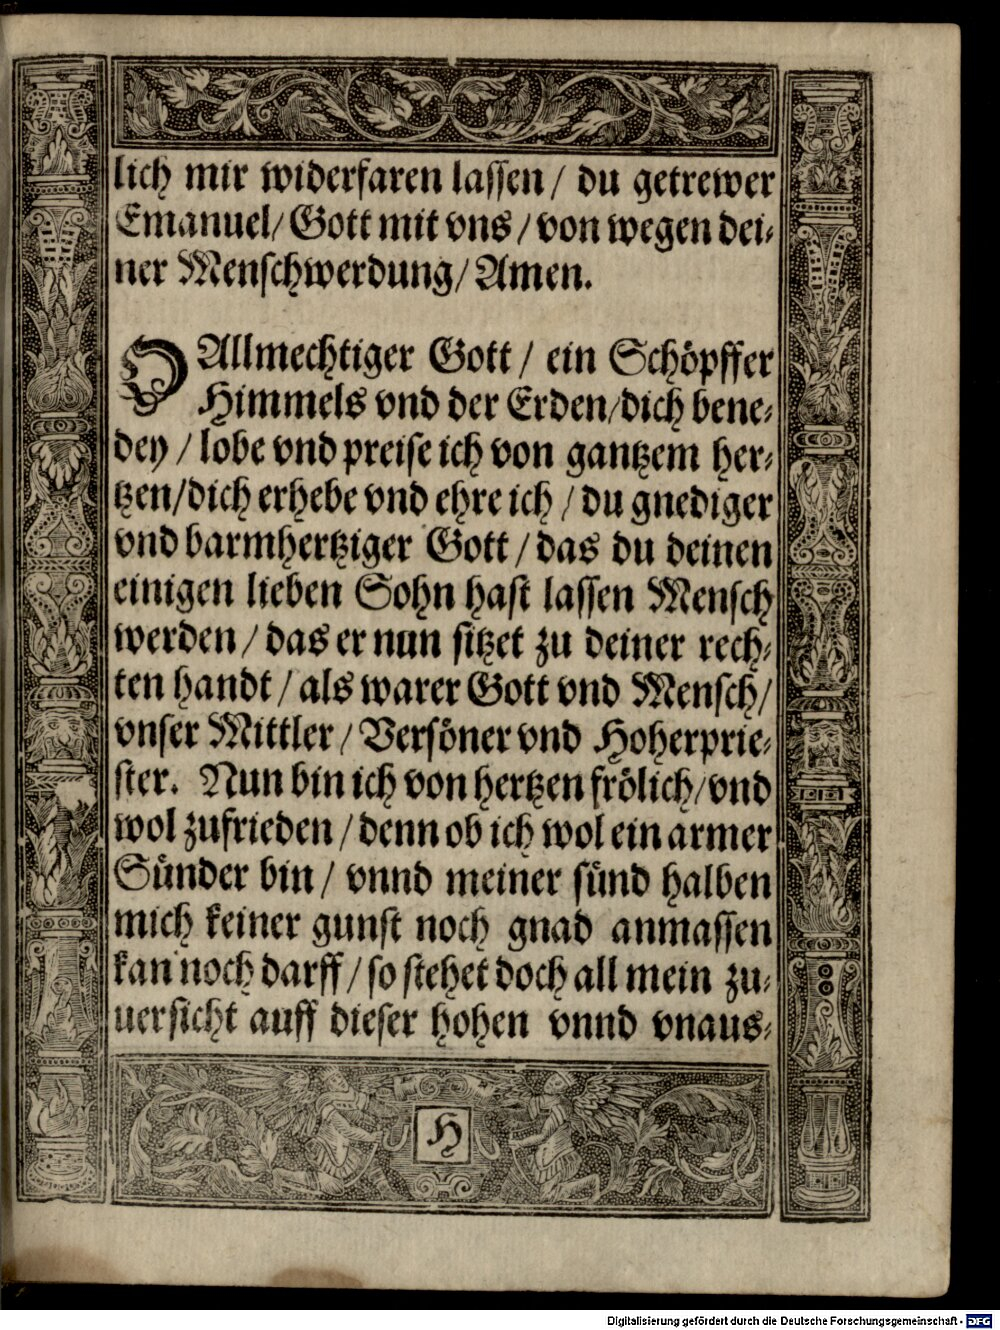 lich mir widerfaren lassen / du getrewer
Emanuel / Gott mit vns / von wegen dei⸗
ner Menschwerdung / Amen.
O Allmechtiger Gott / ein Schöpffer
Himmels vnd der Erden / dich bene⸗
dey / lobe vnd preise ich von gantzem her⸗
tzen / dich erhebe vnd ehre ich / du gnediger
vnd barmhertziger Gott / das du deinen
einigen lieben Sohn hast lassen Mensch
werden / das er nun sitzet zu deiner rech⸗
ten handt / als warer Gott vnd Mensch /
vnser Mittler / Versöner vnd Hoherprie⸗
ster. Nun bin ich von hertzen frölich / vnd
wol zufrieden / denn ob ich wol ein armer
Sünder bin / vnnd meiner sünd halben
mich keiner gunst noch gnad anmassen
kan noch darff / so stehet doch all mein zu⸗
uersicht auff dieser hohen vnnd vnaus⸗
H
Digitalisierung gefördert durch die Deutsche Forschungsgemeinschaft - DFG